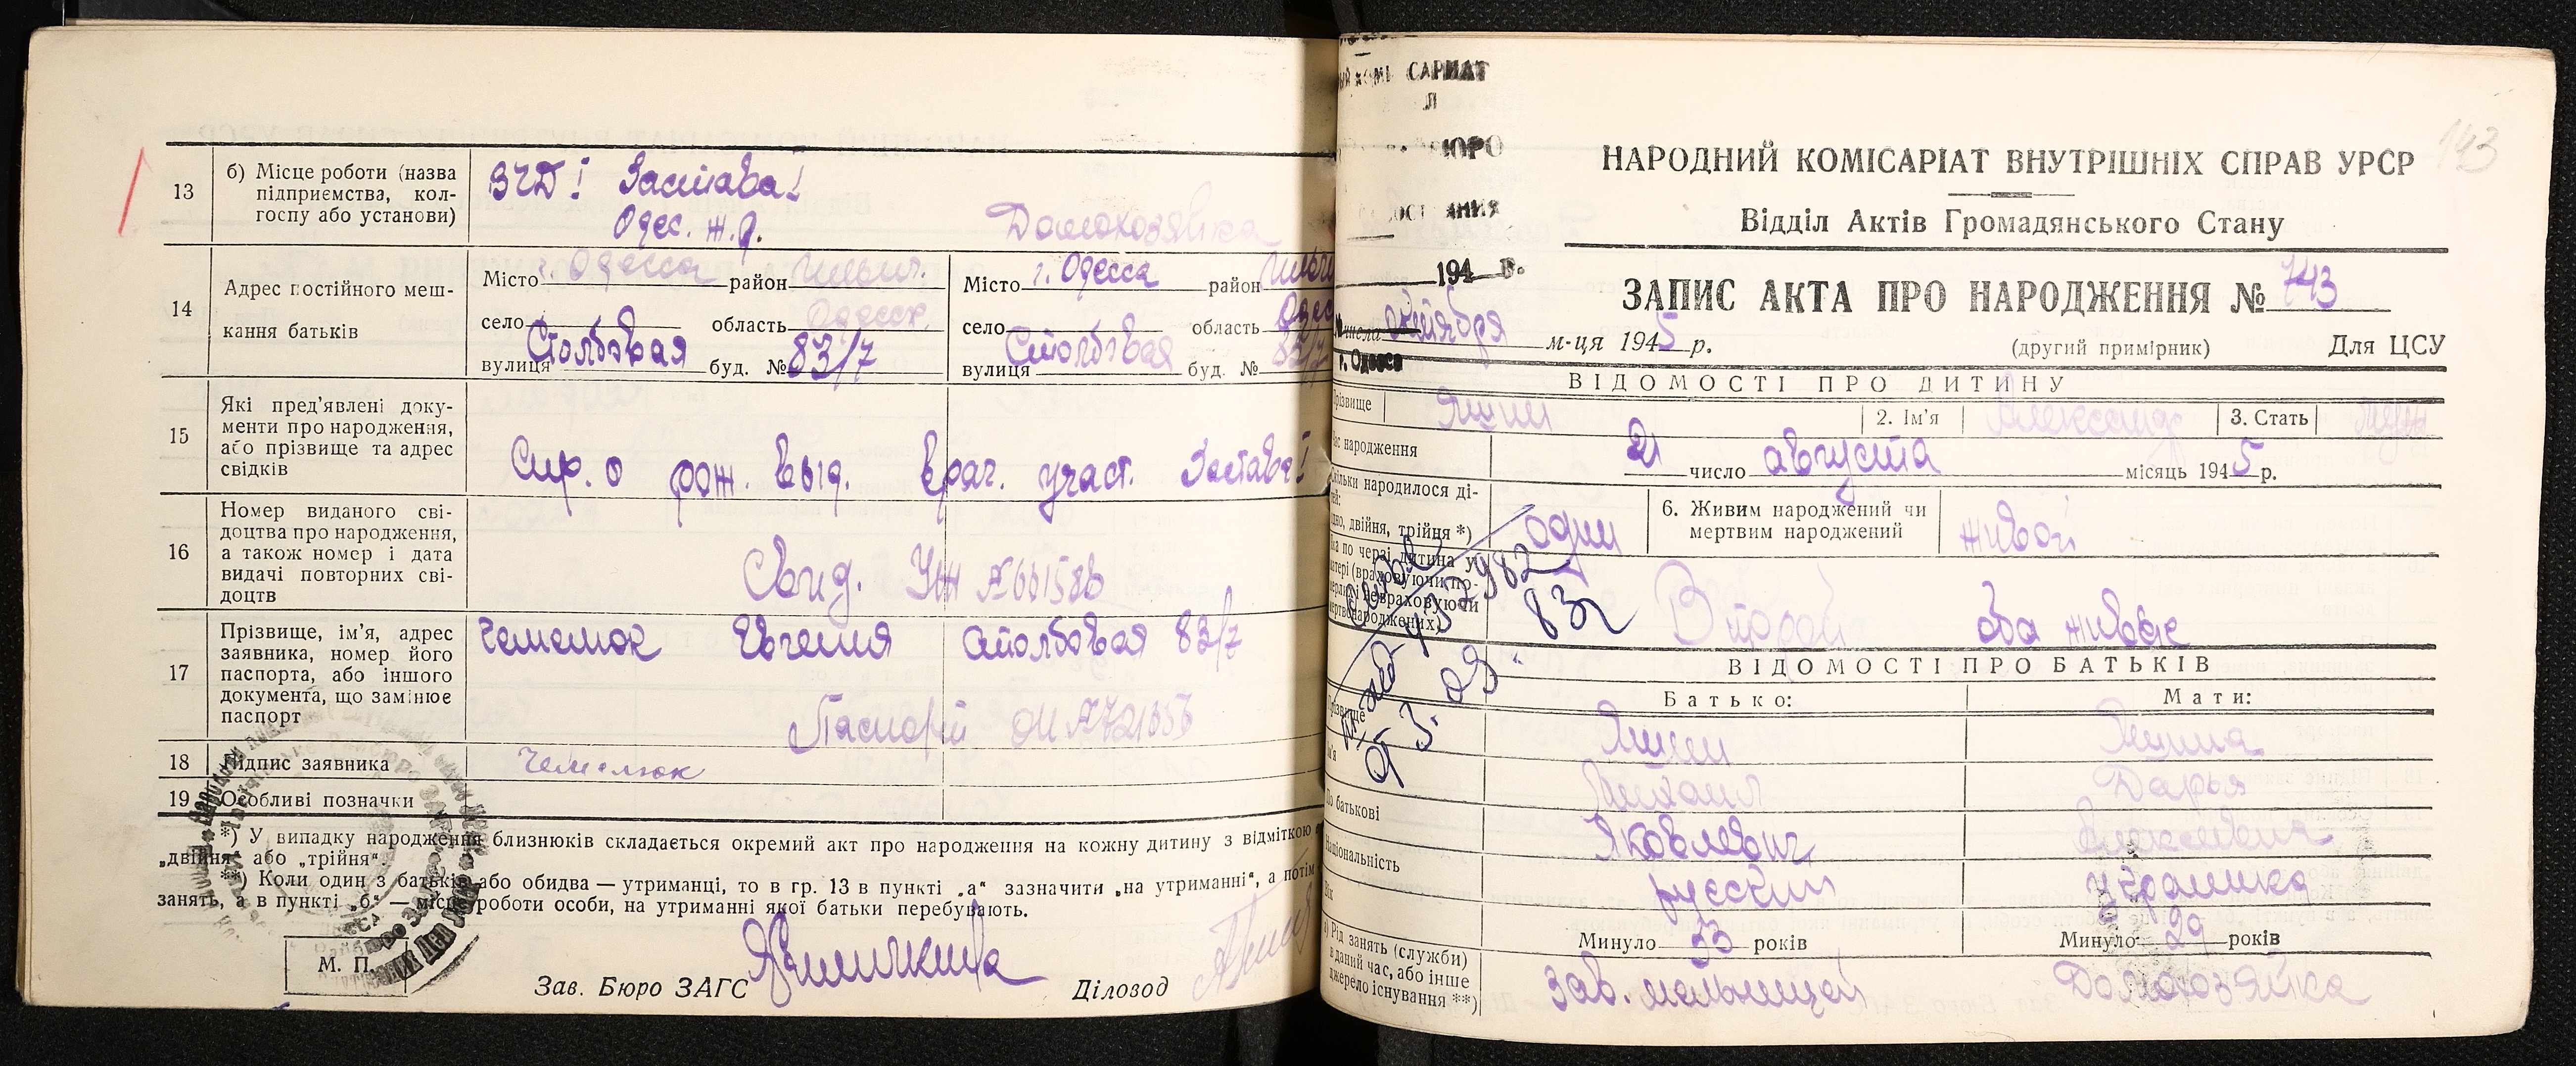 13
б) Місце роботи (назва
підприємства, кол-
госпу або установи)
ВЧД I Застава I
Одес. ж.д.
Домохозяйка
14
Адрес постійного меш-
кання батьків
Місто г. Одесса район Ильич.
село область Одесск.
вулиця Столбовая буд. № 83/7
Місто г. Одесса район
село область
вулиця Столбовая буд. № 83/7
15
Які пред’явлені доку-
менти про народження,
або прізвище та адрес
свідків
Спр. о рож. выд. врач. участ. Застава I
16
Номер виданого сві-
доцтва про народження,
а також номер і дата
видачі повторних сві-
доцтв
Свид. УЖ
17
Прізвище, ім’я, адрес
заявника, номер його
паспорта, або іншого
документа, що замінює
паспорт
Евгения Столбовая 83/7
Паспорт
18
Підпис заявника
19
Особливі позначки
*) У випадку народження близнюків складається окремий акт про народження на кожну дитину з відміткою
„двійня“ або „трійня“.
**) Коли один з батьків або обидва — утриманці, то в гр. 13 в пункті „а“ зазначити „на утриманні“, а потім
занять, а в пункті „б“ — місце роботи особи, на утриманні якої батьки перебувають.
М. П.
Зав. Бюро ЗАГС
Діловод
САРИАТ
БЮРО
194 г.
143
НАРОДНИЙ КОМІСАРІАТ ВНУТРІШНІХ СПРАВ УРСР
Відділ Актів Громадянського Стану
ЗАПИС АКТА ПРО НАРОДЖЕННЯ № 743
числа октября м-ця 1945 р.
(другий примірник) Для ЦСУ
г. Одесса
ВІДОМОСТІ ПРО ДИТИНУ
Прізвище Яшин 2. Ім’я Александр 3. Стать муж
Час народження
21 число августа місяць 1945 р.
Скільки народилося ді-
тей:
одно, двійня, трійня *)
один
6. Живим народжений чи
мертвим народжений
живой
Яка по черзі дитина у
матері (враховуючи по-
мерлих і невраховуючи
мертвонароджених)
Второй оба живые
ВІДОМОСТІ ПРО БАТЬКІВ
Батько: Мати:
Прізвище Яшин Яшина
Ім’я Михаил Дарья
По батькові Яковлевич Алексеевна
Національність русский украинка
Вік Минуло 33 років Минуло 29 років
а) Рід занять (служби)
в даний час, або інше
джерело існування **)
Зав. мельницей Домохозяйка